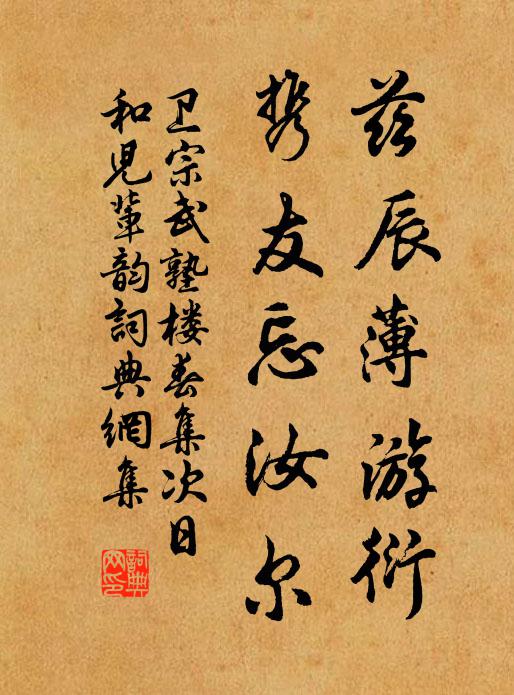 茲辰薄游衍
携友忘汝尔
卫宗武塾楼春集次日
和児輩韵詞典網集
詞典網印